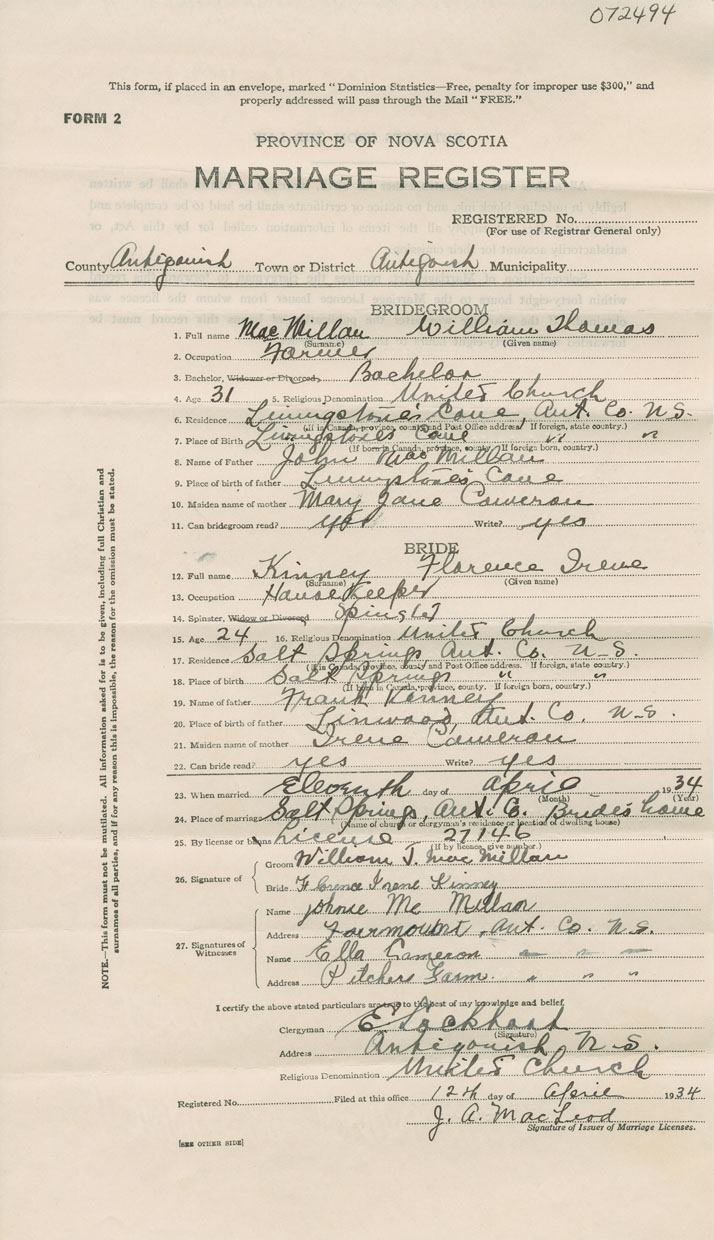 072494
This form, if placed in an envelope, marked "Dominion Statistics—Free, penalty for improper use $300," and
properly addressed will pass through the Mail "FREE."
FORM 2
PROVINCE OF NOVA SCOTIA
MARRIAGE REGISTER
REGISTERED No.
(For use of Registrar General only)
County Antigonish Town or District Antigonish Municipality
BRIDEGROOM
1. Full name MacMillan William Thomas
(Surname) (Given name)
2. Occupation Farmer
3. Bachelor, Widower or Divorced Bachelor
4. Age 31 5. Religious Denomination United Church
6. Residence Livingstone's Cove, Ant. Co. N.S.
(If in Canada, province, county and Post Office address. If foreign, state country.)
7. Place of Birth Livingstone's Cove " "
(If born in Canada, province, county. If foreign born, country.)
8. Name of Father John MacMillan
9. Place of birth of father Livingstone's Cove
10. Maiden name of mother Mary Jane Cameron
11. Can bridegroom read? yes Write? yes
BRIDE
12. Full name Kinney Florence Irene
(Surname) (Given name)
13. Occupation House Keeper
14. Spinster, Widow or Divorced Spinster
15. Age 24 16. Religious Denomination United Church
17. Residence Salt Springs Ant. Co. N.S.
(If in Canada, province, county and Post Office address. If foreign, state country.)
18. Place of birth Salt Springs " "
(If born in Canada, province, county. If foreign born, country.)
19. Name of father Frank Kinney
20. Place of birth of father Linwood, Ant. Co. N.S.
21. Maiden name of mother Irene Cameron
22. Can bride read? yes Write? yes
23. When married Eleventh day of April 1934
(Month) (Year)
24. Place of marriage Salt Springs, Ant. Co. Bride's home
(Name of church or clergyman's residence or location of dwelling house)
25. By license or banns License 27146
(If by licence, give number.)
26. Signature of Groom William T. MacMillan
Bride Florence Irene Kinney
27. Signatures of Witnesses
Name Johnie McMillan
Address Fairmount, Ant. Co. N.S.
Name Ella Cameron " " "
Address Pitchers Farm " " "
I certify the above stated particulars are true to the best of my knowledge and belief
Clergyman E Lockhart
(Signature)
Address Antigonish N.S.
Religious Denomination United Church
Registered No. Filed at this office 12th day of April 1934
J. A. MacLeod
Signature of Issuer of Marriage Licenses.
[SEE OTHER SIDE]
NOTE.—This form must not be mutilated. All information asked for is to be given, including full Christian and
surnames of all parties, and if for any reason this is impossible, the reason for the omission must be stated.